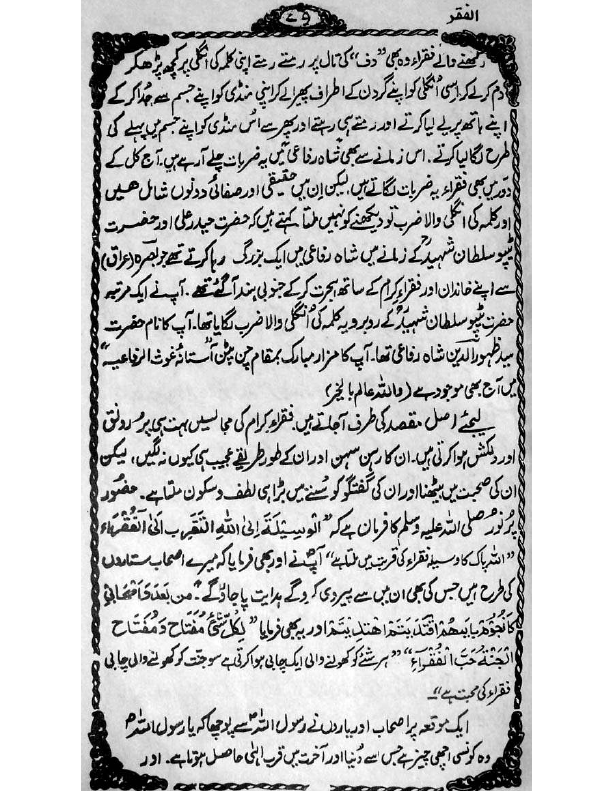 الفقر
۷۹
رکھنے والے فقراء وہ بھی ”دف“ کی تال پر رمتے رمتے اپنی کلمہ کی انگلی پر کچھ پڑھکر
دم کرلے کر اسی اُنگلی کو اپنے گردن کے اطراف پھیرالے کر اپنی منڈی کو اپنے جسم سے جُدا کر کے
اپنے ہاتھ پر لے لیا کرتے اور رمتے ہی رہتے اور پھر سے اُس منڈی کو اپنے جسم میں پہلے کی
طرح لگا لیا کرتے۔ اس زمانے سے بھی شاہ رفاعی میں یہ ضربات چلے آرہے ہیں۔ آج کل کے
دور میں بھی فقراء یہ ضربات لگاتے ہیں، لیکن اِن میں حقیقی اور صفائی دونوں شامل ھیں
اور کلمہ کی انگلی والا ضرب تو دیکھنے کو نہیں ملتا کہتے ہیں کہ حضرت حیدر علی اور حضرت
ٹیپو سلطان شہیدؒ کے زمانے میں شاہ رفاعی میں ایک بزرگ رہا کرتے تھے جو بصرہ (عراق)
سے اپنے خاندان اور فقراء کرام کے ساتھ ہجرت کر کے جنوبی ہند آگئے تھے۔ آپ نے ایک مرتبہ
حضرت ٹیپو سلطان شہیدؒ کے روبرو یہ کلمہ کی اُنگلی والا ضرب لگایا تھا۔ آپ کا نام حضرت
سید ظہور الدین شاہ رفاعی تھا۔ آپ کا مزار مبارک بمقام چن پٹن ”آستانۂ غوث الرفاعیہ“
میں آج بھی موجود ہے (واللہ عالم بالخیر)
لیجئے اصل مقصد کی طرف آجاتے ہیں۔ فقراء کرام کی مجالسیں بہت ہی پر رونق
اور دلکش ہوا کرتی ہیں۔ ان کا رہن سہن اور ان کے طور طریقے عجیب ہی کیوں نہ لگیں، لیکن
ان کی صحبت میں بیٹھنا اور ان کی گفتگو کو سُننے میں بڑا ہی لطف و سکون ملتا ہے۔ حضور
پُر نور صلی اللہ علیہ وسلم کا فرمان ہے کہ ”الوسیلۃ الی اللہ التقرب الی الفقراء
”اللہ پاک کا وسیلہ فقراء کی قربت میں ملتا ہے“ آپؐ نے اور بھی فرمایا کہ میرے اصحاب ستاروں
کی طرح ہیں جس کی بھی ان میں سے پیروی کرو گے ہدایت پا جاؤ گے۔ ”من بعد واصحابی
کالنجوم بایہم اقتدیتم اھتدیتم اور یہ بھی فرمایا ”لکل شئ مفتاح و مفتاح
الجنۃ حب الفقراء“ ”ہر شئے کو کھولنے والی ایک چابی ہوا کرتی ہے سو جنت کو کھولنے والی چابی
فقراء کی محبت ہے“۔
ایک موقعہ پر اصحاب اور یاروں نے رسول اللہؐ سے پوچھا کہ یا رسول اللہؐ
وہ کونسی اچھی چیز ہے جس سے دُنیا اور آخرت میں قرب الہٰی حاصل ہوتا ہے۔ اور